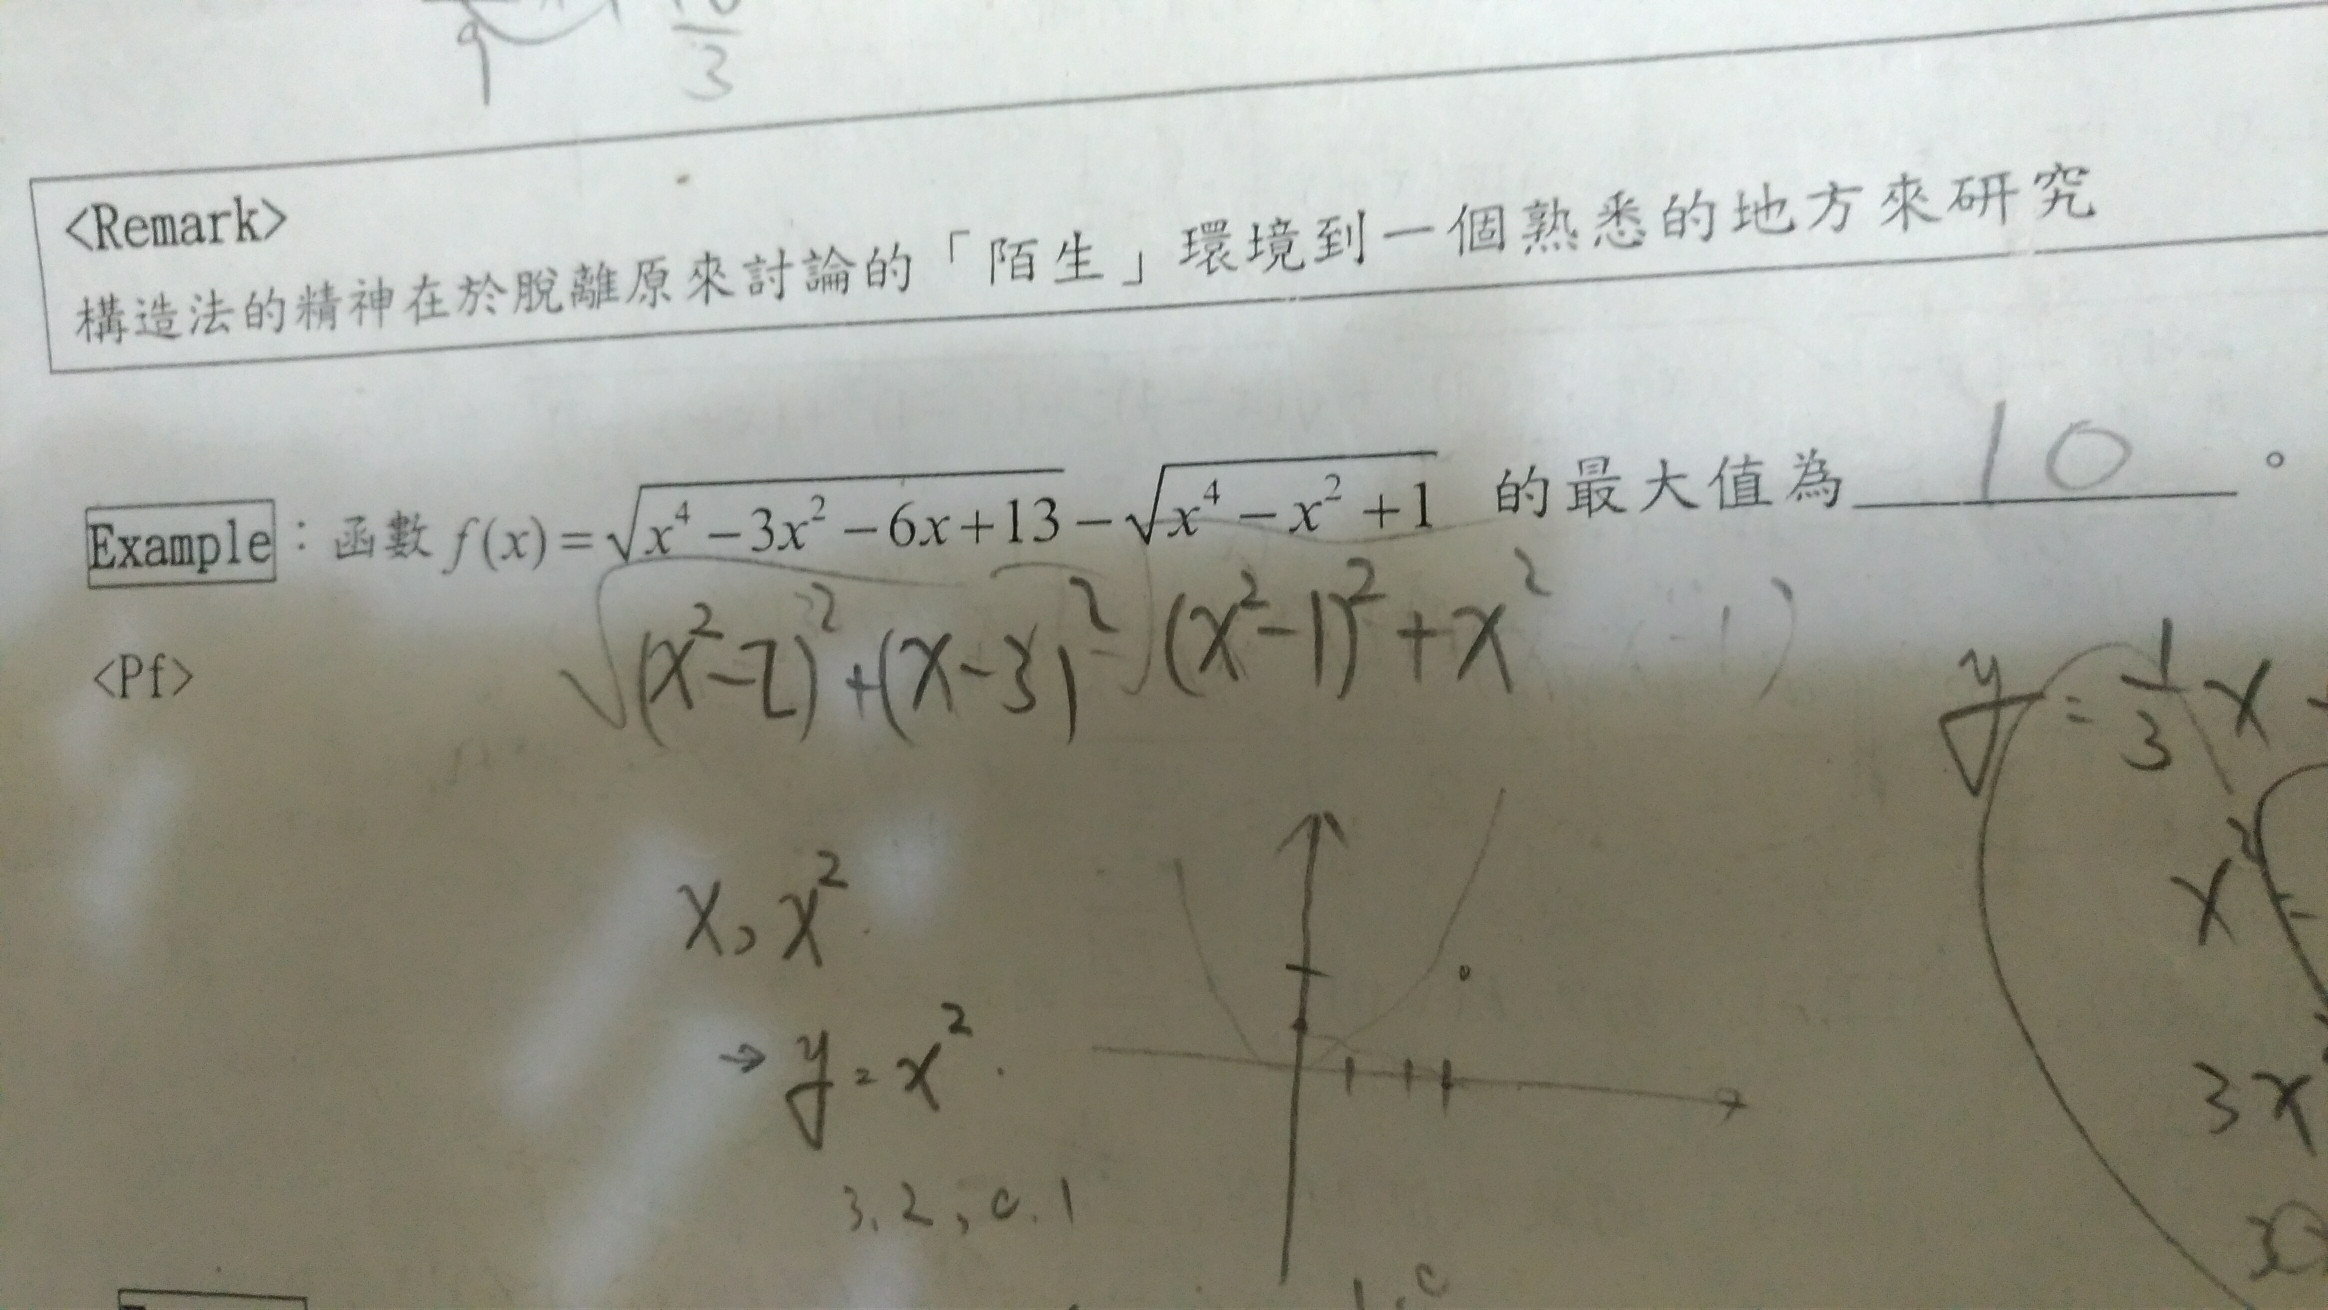 9
3
<Remark>
構造法的精神在於脫離原來討論的「陌生」環境到一個熟悉的地方來研究
Example：函數 f(x)=√(x⁴−3x²−6x+13)−√(x⁴−x²+1) 的最大值為 10 。
√(x²-2)²+(x-3)² - √(x²-1)²+x²
<Pf>
y=1/3x
x, x²
x²
→ y=x².
3x
3.2, 0.1